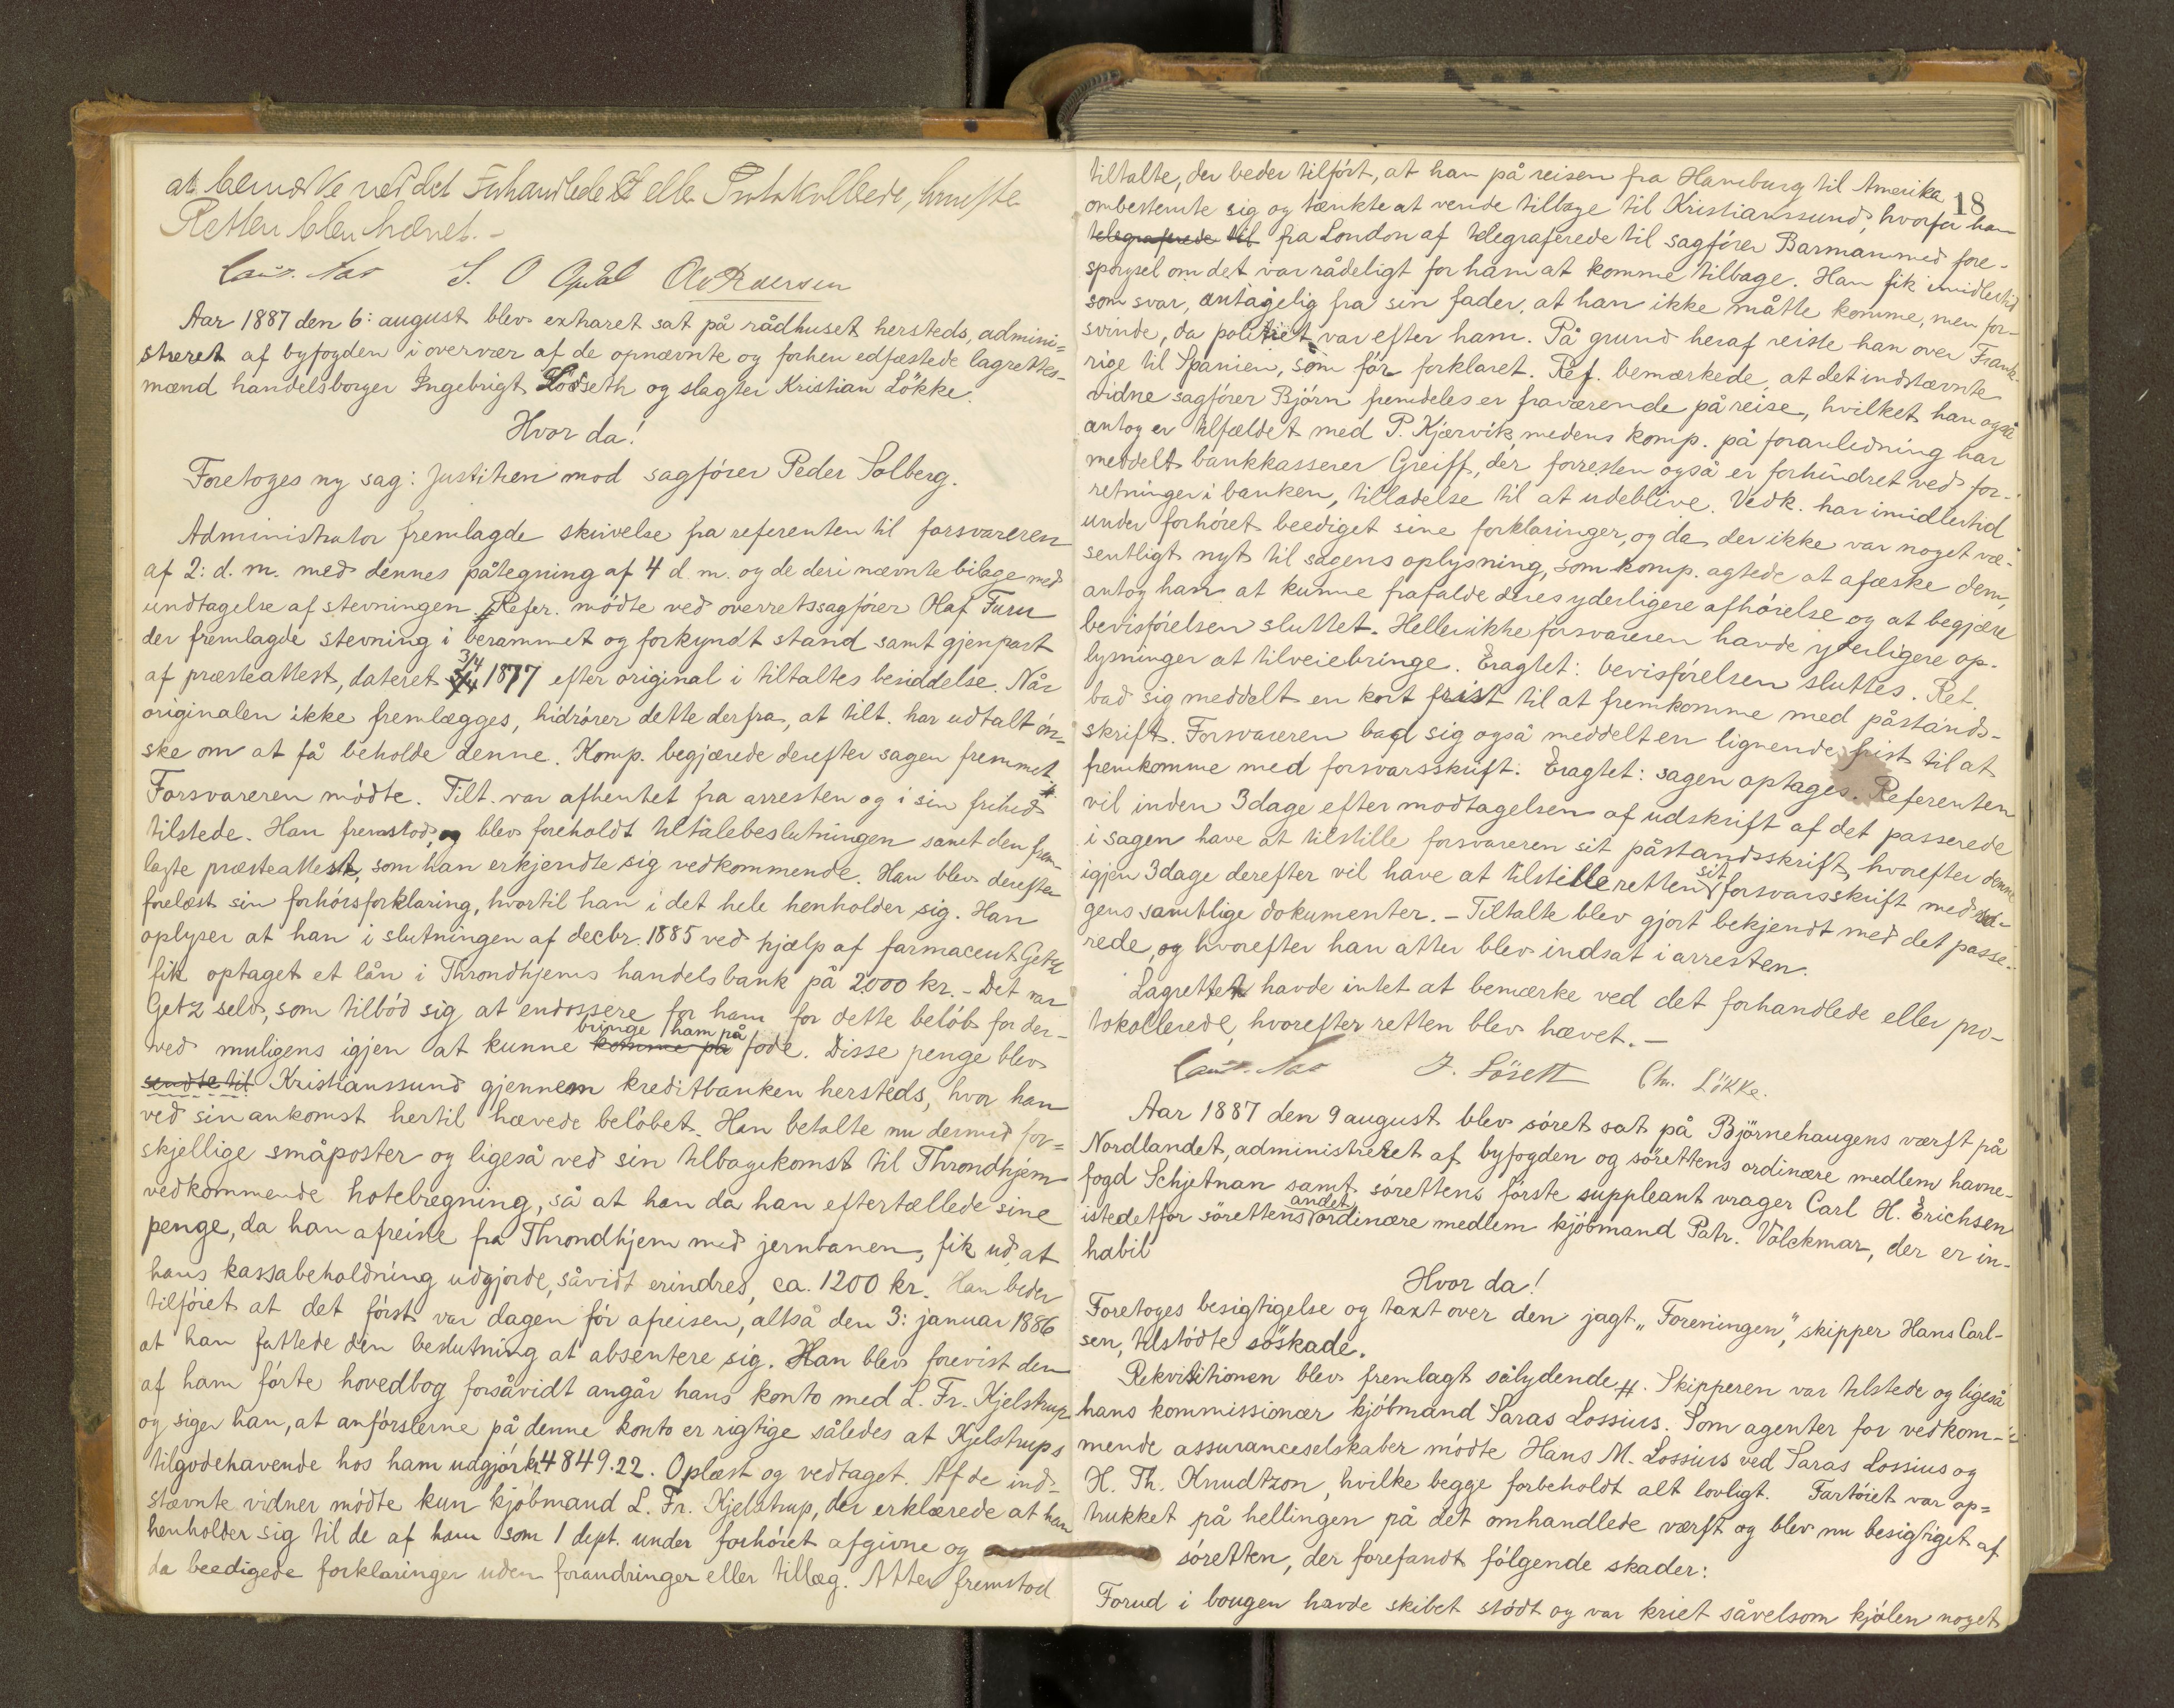 at bemærke ved det Forhandlede eller Protokollerede, hvorefter
Retten blev hævet. -
S. O Opdal Ole Pedersen
Aar 1887 den 6: august blev extraret sat på rådhuset hersteds, admini=
streret af byfogden i overvær af de opnævnte og forhen edfæstede lagrettes-
mænd handelsborger Ingebrigt Lødseth og slagter Kristian Løkke.
Hvor da!
Foretoges ny sag: Justitien mod sagfører Peder Solberg.
Administrator fremlagde skrivelse fra referenten til forsvareren
af 2: d. m. med dennes påtegning af 4 d. m. og de deri nævnte bilage med
undtagelse af stevningen. # Refer. mødte ved overretssagfører Olaf Furu
der fremlagde stevning i berammet og forkyndt stand samt gjenpart
af præsteattest, dateret 3/4 1877 efter original i tiltaltes besiddelse. Når
originalen ikke fremlægges, hidrører dette derfra, at tilt. har udtalt øn=
ske om at få beholde denne. Komp. begjærede derefter sagen fremmet. #
Forsvareren mødte. Tilt. var afhentet fra arresten og i sin frihed
tilstede. Han fremstod, og blev foreholdt tiltalebeslutningen samt den frem-
lagte præsteattest, som han erkjendte sig vedkommende. Han blev derefter
forelæst sin forhørsforklaring, hvortil han i det hele henholder sig. Han
oplyser at han i slutningen af decbr. 1885 ved hjælp af farmaceut Getz
fik optaget et lån i Throndhjems handelsbank på 2000 kr. - Det var
Getz selv, som tilbød sig at endossere for ham for dette beløb for der-
ved muligens igjen at kunne komme på bringe ham på fode. Disse penge blev
sendte til Kristianssund gjennem kreditbanken hersteds, hvor han
ved sin ankomst hertil hævede beløbet. Han betalte nu dermed for=
skjellige småposter og ligeså ved sin tilbagekomst til Throndhjem
vedkommende hotelregning, så at han da han eftertællede sine
penge, da han afreiste fra Throndhjem med jernbanen, fik ud, at
hans kassabeholdning udgjorde, såvidt erindres, ca. 1200 kr. Han beder
tilføiet at det først var dagen før afreisen, altså den 3: januar 1886
at han fattede den beslutning at absentere sig. Han blev forevist den
af ham førte hovedbog forsåvidt angår hans konto med L. Fr. Kjelstrup
og siger han, at anførslerne på denne konto er rigtige således at Kjelstrups
tilgodehavende hos ham udgjør kr. 4849.22. Oplæst og vedtaget. Af de ind-
stævnte vidner mødte kun kjøbmand L. Fr. Kjelstrup, der erklærede at han
henholder sig til de af ham som 1 dept. under forhøret afgivne og
da beedigede forklaringer uden forandringer eller tillæg. Atter fremstod
18
tiltalte, der beder tilført, at han på reisen fra Hamburg til Amerika
ombestemte sig og tænkte at vende tilbage til Kristianssund, hvorfor han
telegraferede til fra London af telegraferede til sagfører Barman med fore-
spørgsel om det var rådeligt for ham at komme tilbage. Han fik imidlertid
som svar, antagelig fra sin fader, at han ikke måtte komme, men for-
svinde, da politiet var efter ham. På grund heraf reiste han over Frank-
rige til Spanien, som før forklaret. Ref. bemærkede, at det indstævnte
vidne sagfører Bjørn fremdeles er fraværende på reise, hvilket han også
antog er tilfældet med P. Kjærvik, medens komp. på foranledning har
meddelt bankkasserer Greiff, der forresten også er forhindret ved for-
retninger i banken, tilladelse til at udeblive. Vedk. har imidlertid
under forhøret beediget sine forklaringer, og da der ikke var noget væ-
sentligt nyt til sagens oplysning, som komp. agtede at afæske dem,
antog han at kunne frafalde deres yderligere afhørelse og at begjære
bevisførelsen sluttet. Heller ikke forsvareren havde yderligere op-
lysninger at tilveiebringe. Eragtet: bevisførelsen sluttes. Ref.
bad sig meddelt en kort frist til at fremkomme med påstands-
skrift. Forsvareren bad sig også meddelt en lignende frist til at
fremkomme med forsvarsskrift. Eragtet: sagen optages. Referenten
vil inden 3 dage efter modtagelsen af udskrift af det passerede
i sagen have at tilstille forsvareren sit påstandsskrift, hvorefter denne
igjen 3 dage derefter vil have at tilstille retten sit forsvarsskrift med sa-
gens samtlige dokumenter. - Tiltalte blev gjort bekjendt med det passe-
rede, og hvorefter han atter blev indsat i arresten.
Lagrettet havde intet at bemærke ved det forhandlede eller pro-
tokollerede, hvorefter retten blev hævet. -
J. Lösett Chr. Lökke.
Aar 1887 den 9 august blev søret sat på Bjørnehaugens værft på
Nordlandet, administreret af byfogden og sørettens ordinære medlem havne-
fogd Schjetnan samt sørettens første suppleant vrager Carl H. Erichsen
istedetfor sørettens andet ordinære medlem kjøbmand Patr. Volckmar, der er in-
habil
Hvor da!
Foretoges besigtigelse og taxt over den jagt „Foreningen“, skipper Hans Carl-
sen, tilstødte søskade.
Rekvisitionen blev fremlagt sålydende #. Skipperen var tilstede og ligeså
hans kommissionær kjøbmand Saras Lossius. Som agenter for vedkom-
mende assuranceselskaber mødte Hans M. Lossius ved Saras Lossius og
H. Th. Knudtzon, hvilke begge forbeholdt alt lovligt. Fartøiet var op=
trukket på hellingen på det omhandlede værft og blev nu besigtiget af
søretten, der forefandt følgende skader:
Forud i bougen havde skibet stødt og var kriet såvelsom kjølen noget